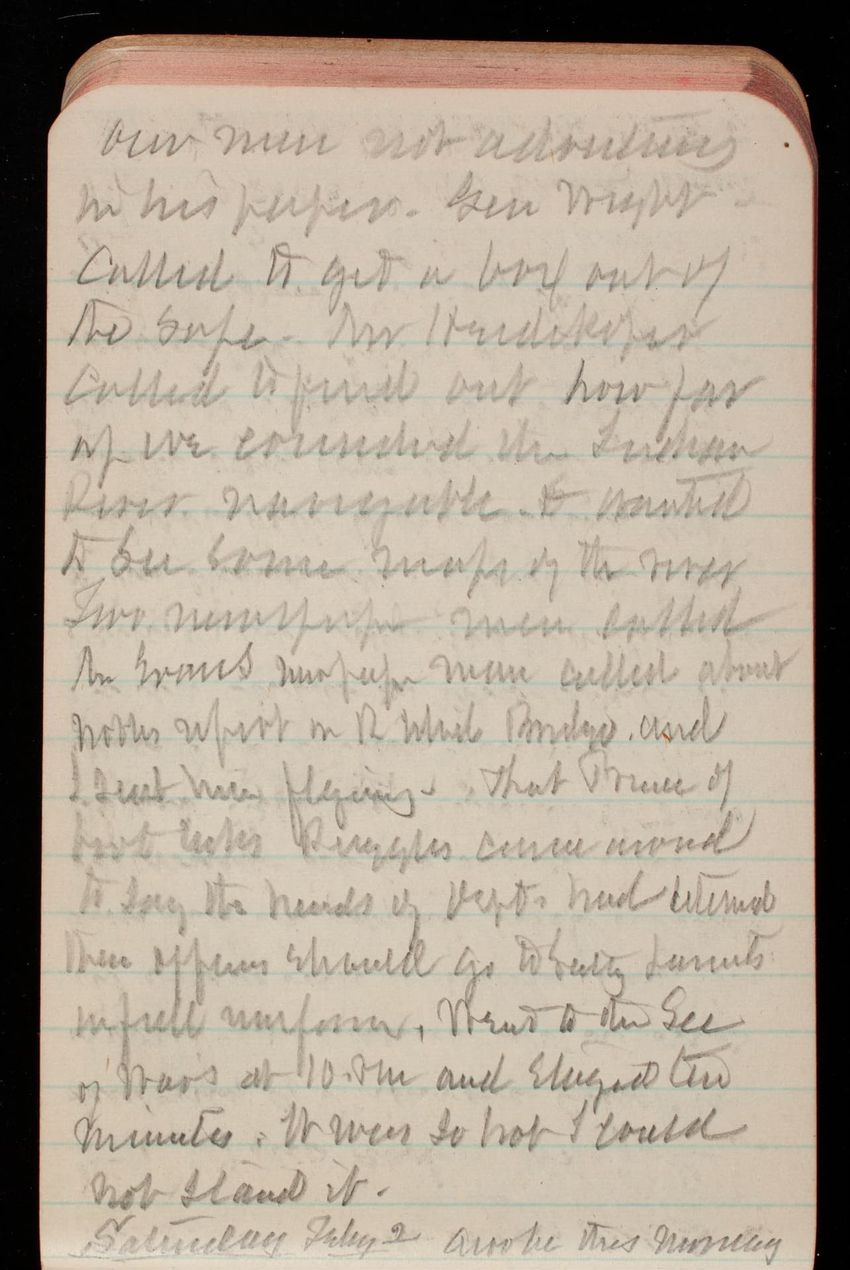 our men not advertising
in his paper. Gen Wright
Called to get a box out of
the Safe. Mr
Called to find out how far
up we considered the Indian
River navigable. & wanted
to See Some maps of the river
Two newspaper men called
Mr Evans newspaper man called about
report on Bridge. and
I Sent him flying. That Prince of
boot licks Ruggles came around
to Say the heads of Depts had
their officers Should go to
in full uniform, Went to the Sec
of War's at 10 PM and Stayed ten
minutes. It was So hot I could
not Stand it.
Saturday Feby 2 Awoke this Morning